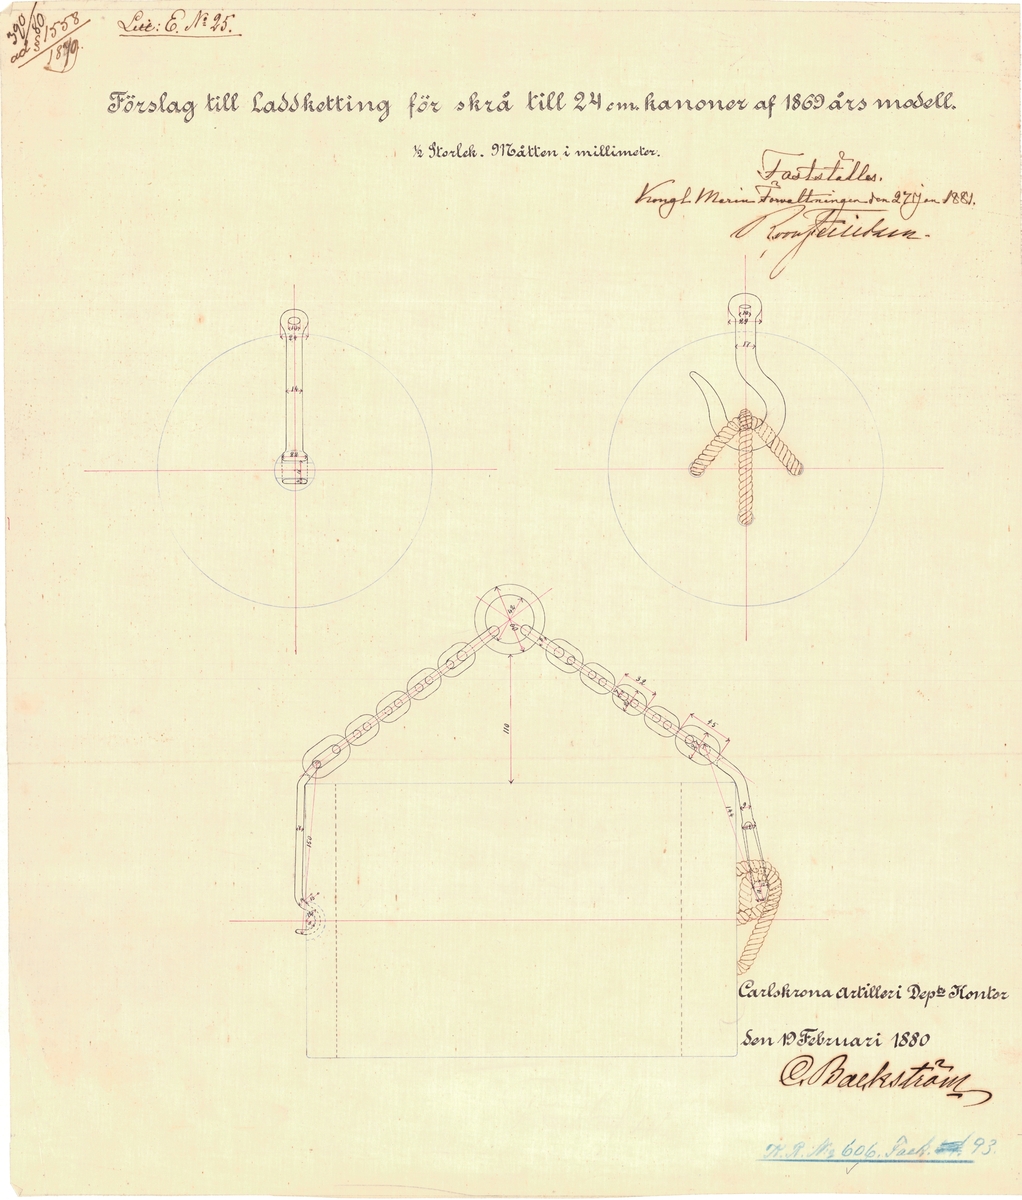 390/80
ad §1558
1880
Litt: E. Nº 25.
Förslag till Laddketting för skrå till 24 cm. kanoner af 1869 års modell.
½ Storlek. Måtten i millimeter.
Fastställes.
Kongl Marin Förvaltningen den 27 jan 1881.
24
14
29
17
42
110
32
45
150
144
9
Carlskrona Artilleri Depts Kontor
den 19 Februari 1880
C. Baekström
K. R. Nº 606. Fack. 93.